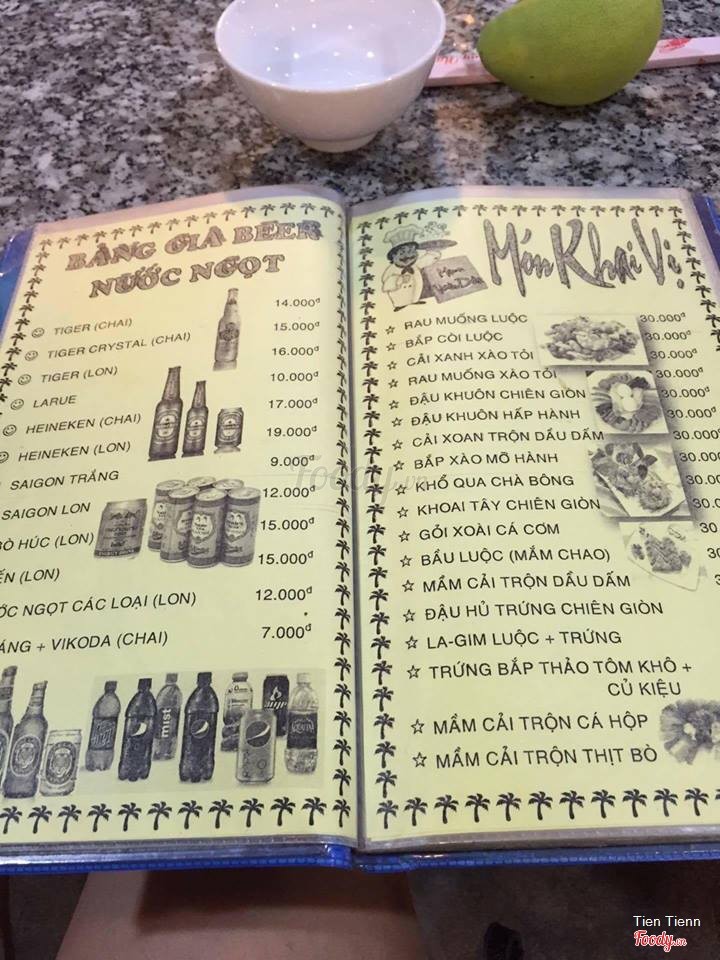 BẢNG GIA BEER
NƯỚC NGỌT
14.000đ
TIGER (CHAI) 15.000đ
TIGER CRYSTAL (CHAI) 16.000đ
TIGER (LON) 10.000đ
LARUE 17.000đ
HEINEKEN (CHAI) 19.000đ
HEINEKEN (LON) 9.000đ
SAIGON TRẮNG 12.000đ
SAIGON LON 15.000đ
BÒ HÚC (LON) 15.000đ
YẾN (LON)
ỚC NGỌT CÁC LOẠI (LON) 12.000đ
ÁNG + VIKODA (CHAI) 7.000đ
Món Khai Vị
RAU MUỐNG LUỘC 30.000đ
BẮP CÒI LUỘC 30.000đ
CẢI XANH XÀO TỎI 30.000đ
RAU MUỐNG XÀO TỎI 30.000đ
ĐẬU KHUÔN CHIÊN GIÒN 30.000đ
ĐẬU KHUÔN HẤP HÀNH 30.000đ
CẢI XOAN TRỘN DẦU DẤM 30.000đ
BẮP XÀO MỠ HÀNH 30.000
KHỔ QUA CHÀ BÔNG 30.000
KHOAI TÂY CHIÊN GIÒN 30.0
GỎI XOÀI CÁ CƠM 30.
BẦU LUỘC (MẮM CHAO) 30
MẦM CẢI TRỘN DẦU DẤM 3
ĐẬU HỦ TRỨNG CHIÊN GIÒN
LA-GIM LUỘC + TRỨNG
TRỨNG BẮP THẢO TÔM KHÔ +
CỦ KIỆU
MẦM CẢI TRỘN CÁ HỘP
MẦM CẢI TRỘN THỊT BÒ
Foody.vn
Tien Tienn
Foody.vn